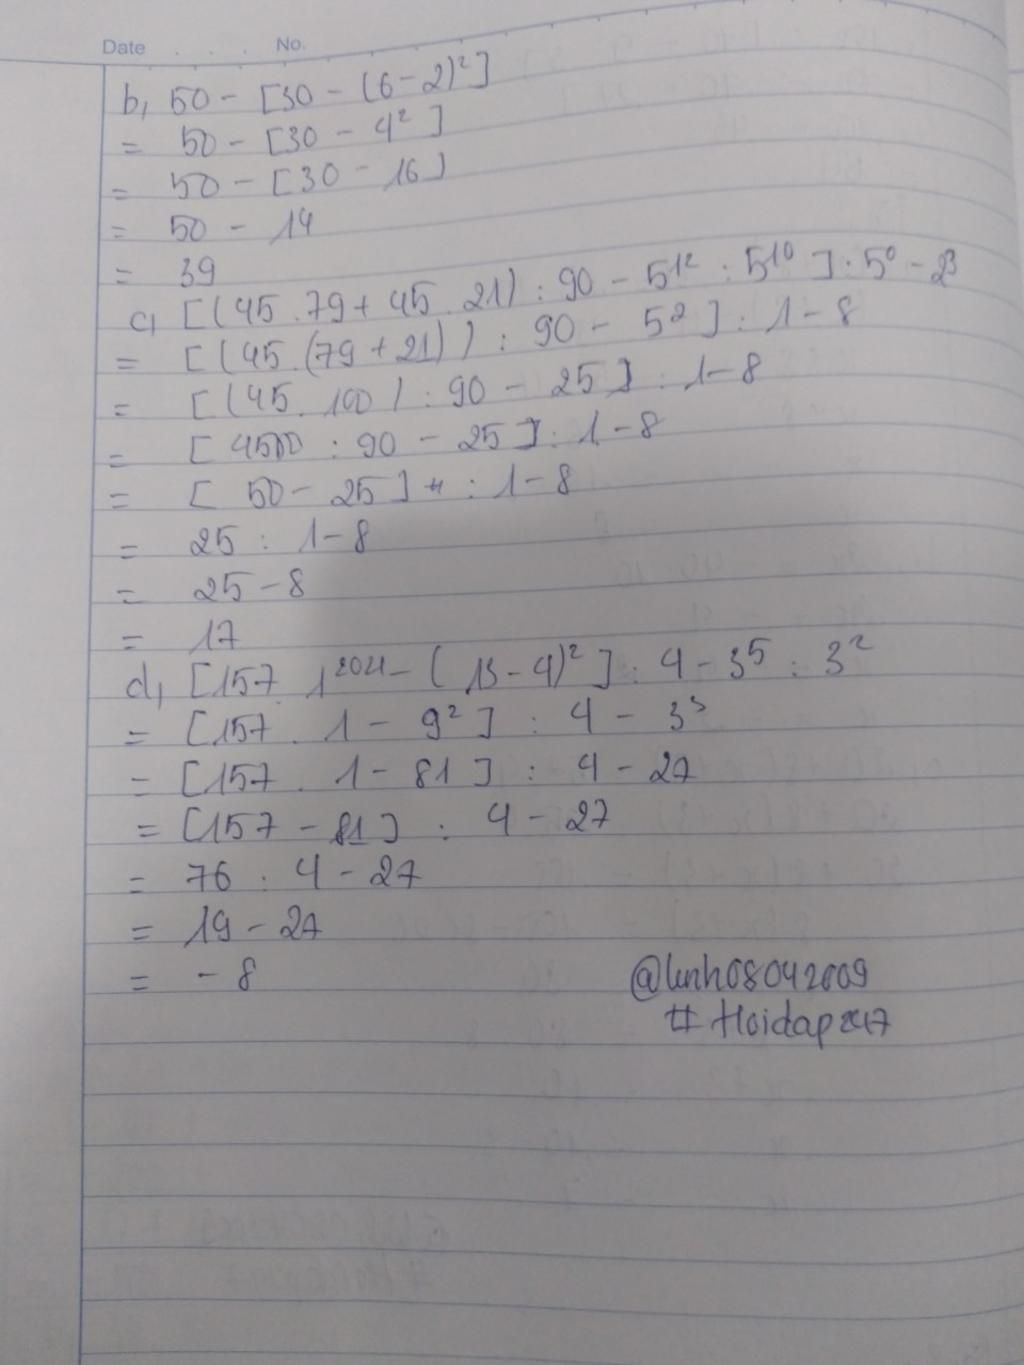 Date . . . . No.
b, 50 - [30 - (6 - 2)²]
= 50 - [30 - 4²]
= 50 - [30 - 16]
= 50 - 14
= 39
c, [(45 . 79 + 45 . 21) : 90 - 5¹² : 5¹⁰] : 5⁰ - 2³
= [(45 . (79 + 21)) : 90 - 5²] : 1 - 8
= [(45 . 100) : 90 - 25] : 1 - 8
= [4500 : 90 - 25] : 1 - 8
= [50 - 25] : 1 - 8
= 25 : 1 - 8
= 25 - 8
= 17
d, [157 . 1²⁰²¹ - (13 - 4)²] : 4 - 3⁵ : 3²
= [157 . 1 - 9²] : 4 - 3³
= [157 . 1 - 81] : 4 - 27
= [157 - 81] : 4 - 27
= 76 : 4 - 27
= 19 - 27
= - 8
@linh08042009
# Hoidap247